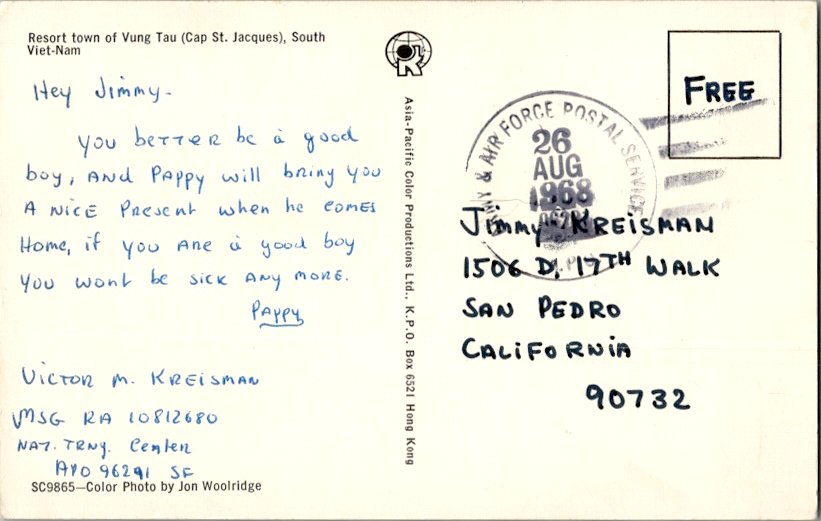 Resort town of Vung Tau (Cap St. Jacques), South
Viet-Nam
Hey Jimmy-
You better be a good
boy, and Pappy will bring you
a nice present when he comes
Home, if you are a good boy
You wont be sick any more.
Pappy
Victor M. Kreisman
MSG RA 10812680
NAT. TRNG. Center
APO 96291 SF
SC9865—Color Photo by Jon Woolridge
Asia-Pacific Color Productions Ltd., K.P.O. Box 6521 Hong Kong
R
ARMY & AIR FORCE POSTAL SERVICE
26
AUG
1968
FREE
Jimmy KREISMAN
1506 D, 17TH WALK
SAN PEDRO
CALiFORNiA
90732